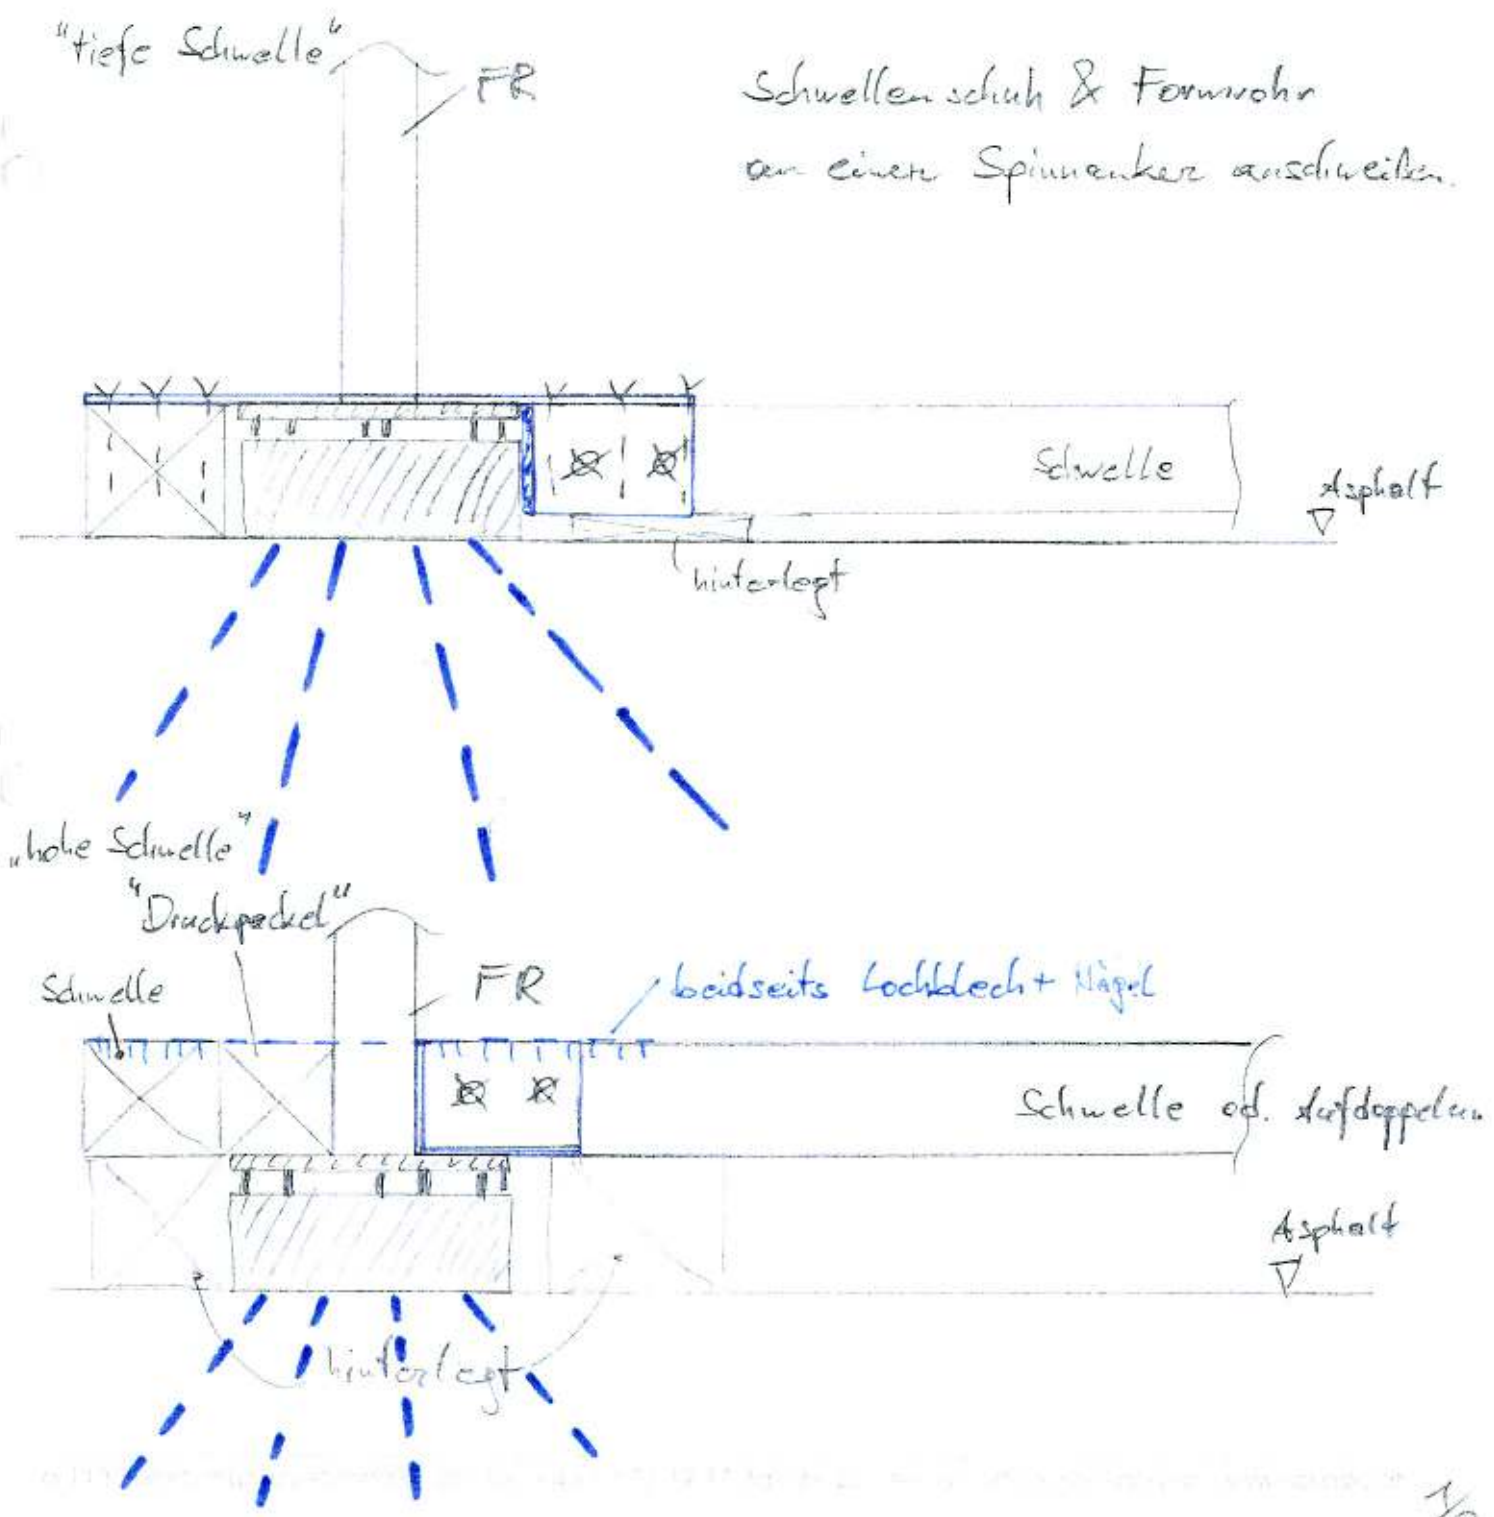 "tiefe Schwelle"
FR
Schwellenschuh & Formrohr
an einen Spinnanker anschweißen.
Schwelle
Asphalt
hinterlegt
„hohe Schwelle"
"Druckpackel"
Schwelle
FR
beidseits Lochblech + Nägel
Schwelle od. Aufdoppelun
Asphalt
hinterlegt